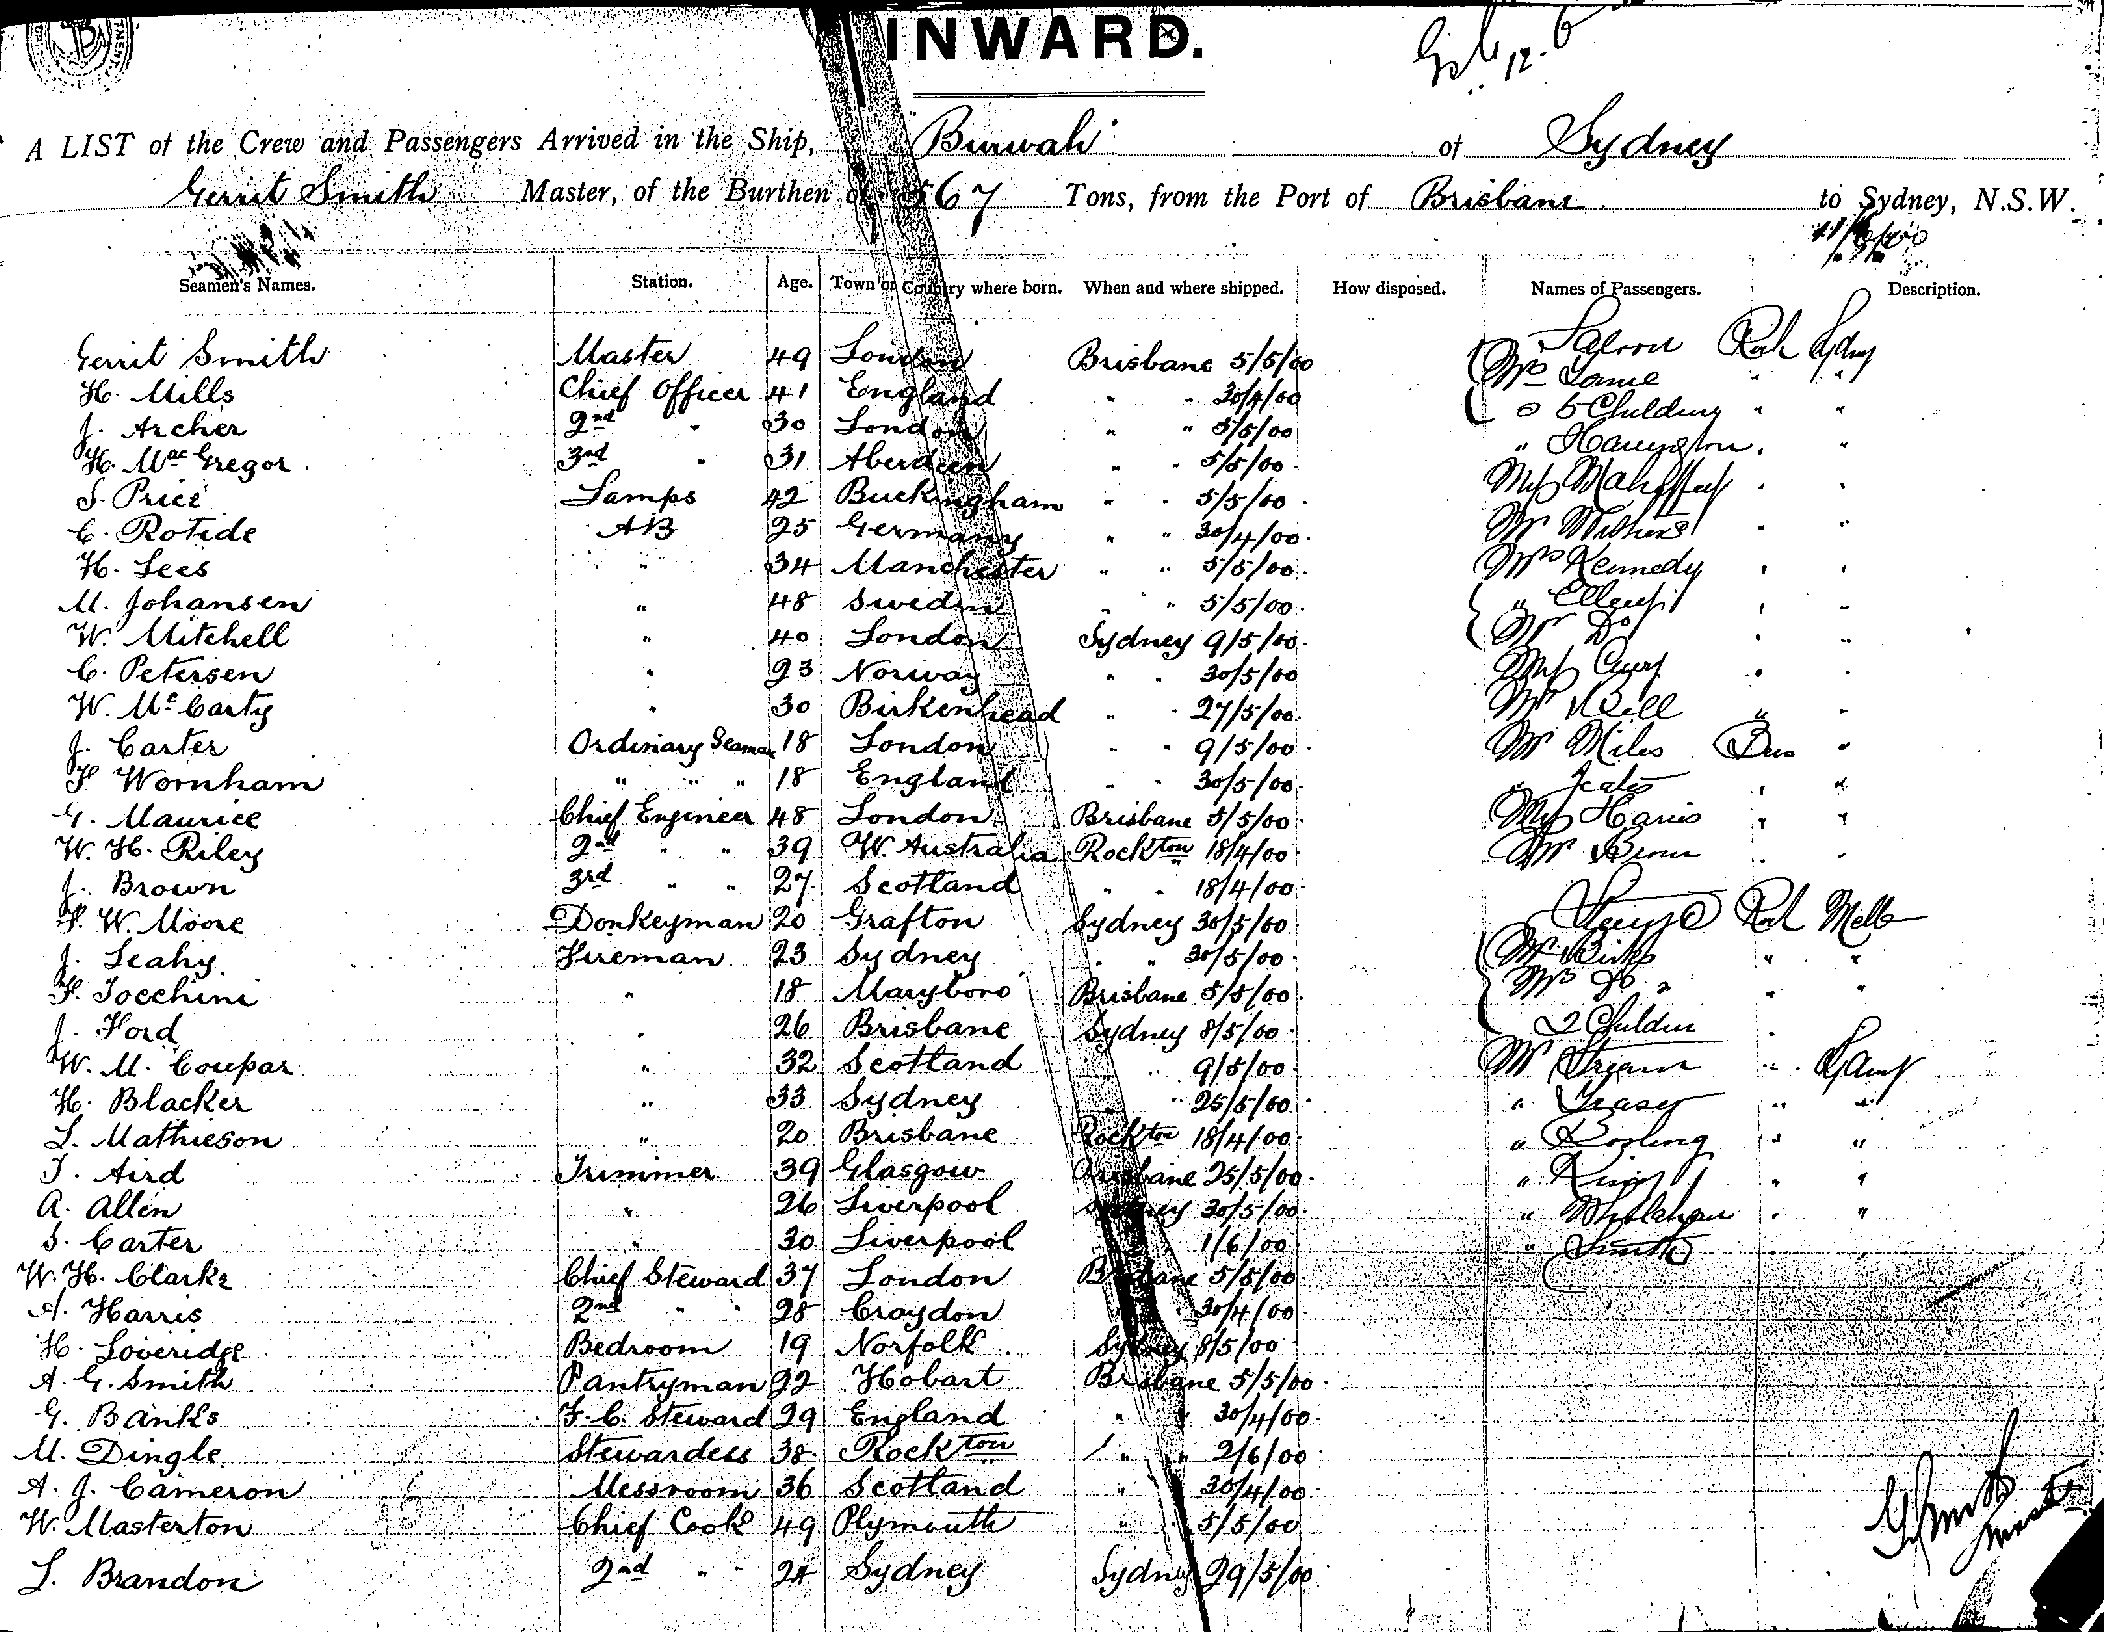 INWARD.
A LIST of the Crew and Passengers Arrived in the Ship, "Burwah" of Sydney
Gerrit Smith Master, of the Burthen of 567 Tons, from the Port of Brisbane to Sydney, N.S.W.
Seamen's Names. Station. Age. Town or Country where born. When and where shipped. How disposed. Names of Passengers. Description.
Saloon Rock Sydney
Gerrit Smith Master 49 London Brisbane 5/5/00 Mrs
H. Mills Chief Officer 41 England " " 30/4/00 " 5 Children " "
J. Archer 2nd " 30 London " " 5/5/00 " Harrington " "
H. MacGregor 3rd " 31 Aberdeen " " 5/5/00
S. Price Lamps 42 Buckingham " " 5/5/00 Miss " "
C. Rotide AB 25 Germany " " 30/4/00 Mr " "
H. Lees " 34 Manchester " " 5/5/00 Mrs Kennedy " "
M. Johansen " 48 Sweden " " 5/5/00 "
W. Mitchell " 40 London Sydney 9/5/00 Mr Do " "
C. Petersen " 23 Norway " " 30/5/00 Miss " "
W. McCarty " 30 Birkenhead " " 27/5/00 Mr Bell " "
J. Carter Ordinary Seaman 18 London " " 9/5/00 Mr Miles Bris "
F. Wornham " " " 18 England " " 30/5/00 " "
G. Maurice Chief Engineer 48 London Brisbane 5/5/00 Miss Harris " "
W. H. Riley 2nd " " 39 W. Australia Rockton 18/4/00 Mr " "
J. Brown 3rd " " 27 Scotland " " 18/4/00
F. W. Moore Donkeyman 20 Grafton Sydney 30/5/00 Steerage Rock Melb
J. Leahy Fireman 23 Sydney " " 30/5/00 Mr " "
F. Tocchini " 18 Maryboro Brisbane 5/5/00 Mrs Do " "
J. Ford " 26 Brisbane Sydney 8/5/00 2 Children "
W. M. Coupar " 32 Scotland " 9/5/00 Mr " Sydney
H. Blacker " 33 Sydney " " 25/5/00 " " "
L. Mathieson " 20 Brisbane Rockton 18/4/00 " " "
T. Aird Trimmer 39 Glasgow Brisbane 25/5/00 " King " "
A. Allen " 26 Liverpool Sydney 30/5/00 " " "
S. Carter " 30 Liverpool 1/6/00 " Smith " "
W. H. Clarke Chief Steward 37 London Brisbane 5/5/00
A. Harris 2nd " " 28 Croydon " 30/4/00
H. Loveridge Bedroom 19 Norfolk Sydney 8/5/00
A. G. Smith Pantryman 22 Hobart Brisbane 5/5/00
G. Banks F. C. Steward 29 England " " 30/4/00
M. Dingle Stewardess 38 Rockton " " 2/6/00
A. J. Cameron Messroom 36 Scotland " 30/4/00
W. Masterton Chief Cook 49 Plymouth " 5/5/00
L. Brandon 2nd " " 24 Sydney Sydney 29/5/00
G. Smith
Master